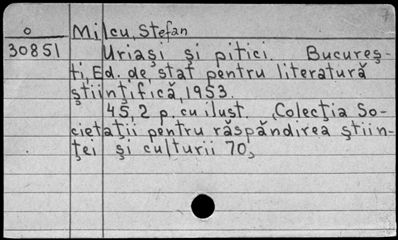 o Milcu, Ştefan
30851 Uriaşi şi pitici. Bucureş-
ti, Ed. de stat pentru literatură
ştiinţifică, 1953.
45,2 p. cu ilust. (Colecţia So-
cietaţii pentru răspăndirea ştiin-
ţei şi culturii 70)